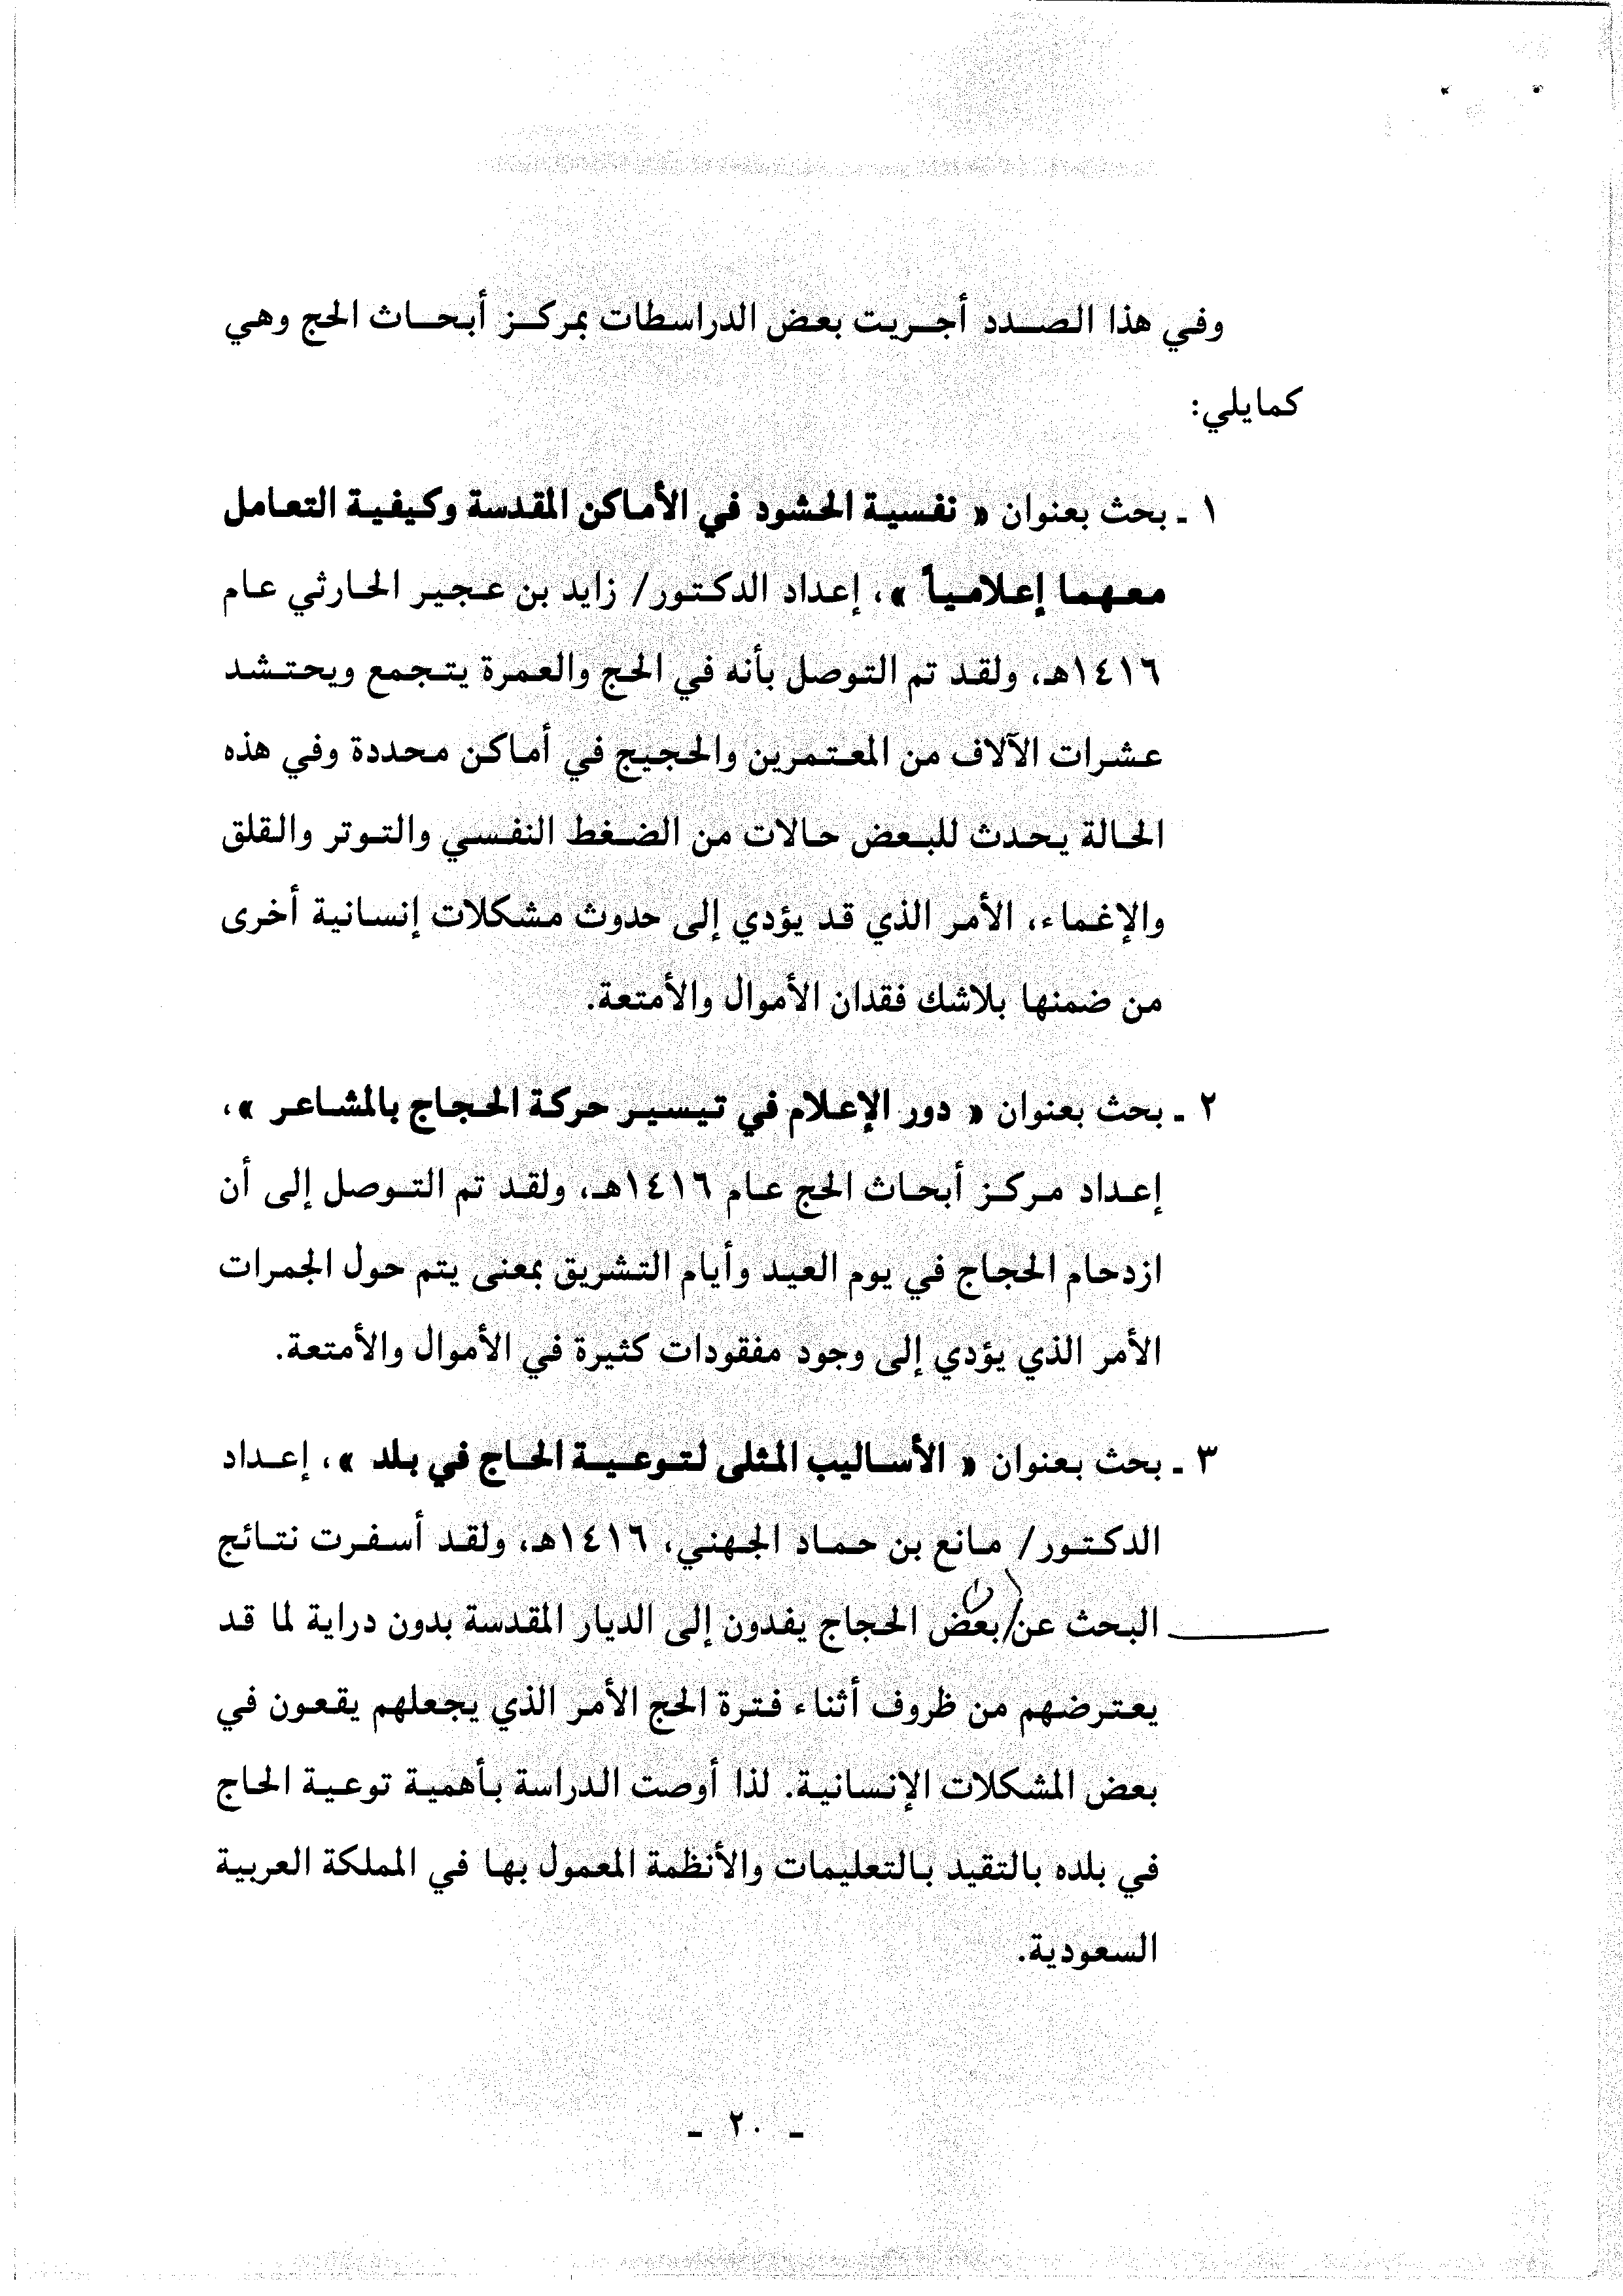 وفي هذا الصدد أجريت بعض الدراسطات بمركز أبحاث الحج وهي
كمايلي:
١ ـ بحث بعنوان « نفسية الحشود في الأماكن المقدسة وكيفية التعامل
معهما إعلامياً »، إعداد الدكتور/ زايد بن عجير الحارثي عام
١٤١٦هـ، ولقد تم التوصل بأنه في الحج والعمرة يتجمع ويحتشد
عشرات الآلاف من المعتمرين والحجيج في أماكن محددة وفي هذه
الحالة يحدث للبعض حالات من الضغط النفسي والتوتر والقلق
والإغماء، الأمر الذي قد يؤدي إلى حدوث مشكلات إنسانية أخرى
من ضمنها بلاشك فقدان الأموال والأمتعة.
٢ ـ بحث بعنوان « دور الإعلام في تيسير حركة الحجاج بالمشاعر »،
إعداد مركز أبحاث الحج عام ١٤١٦هـ، ولقد تم التوصل إلى أن
ازدحام الحجاج في يوم العيد وأيام التشريق بمعنى يتم حول الجمرات
الأمر الذي يؤدي إلى وجود مفقودات كثيرة في الأموال والأمتعة.
٣ ـ بحث بعنوان « الأساليب المثلى لتوعية الحاج في بلد »، إعداد
الدكتور/ مانع بن حماد الجهني، ١٤١٦هـ، ولقد أسفرت نتائج
البحث عن بعض الحجاج يفدون إلى الديار المقدسة بدون دراية لما قد
يعترضهم من ظروف أثناء فترة الحج الأمر الذي يجعلهم يقعون في
بعض المشكلات الإنسانية. لذا أوصت الدراسة بأهمية توعية الحاج
في بلده بالتقيد بالتعليمات والأنظمة المعمول بها في المملكة العربية
السعودية.
ـ ٢٠ ـ